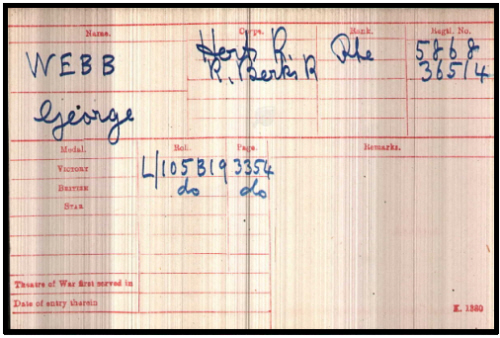 Name. Corps. Rank. Regtl. No.
WEBB Herts R. Pte 5868
R. Berks R 36514
George
Medal. Roll. Page. Remarks.
VICTORY L/105B19 3354
BRITISH do do
STAR
Theatre of War first served in
Date of entry therein
K. 1380